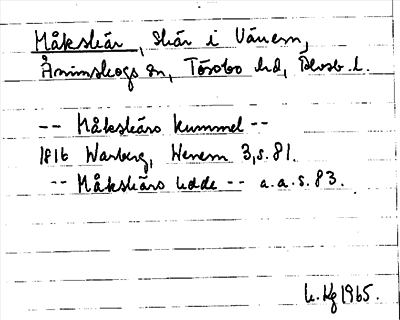 Måkskär, skär i Vänern,
Ånimskogs sn, Tössbo hd, Älvsb. l.
-- Måkskärs kummel --
1816 Warberg, Wenern 3, s. 81.
-- Måkskärs udde -- a.a. s. 83.
1965.